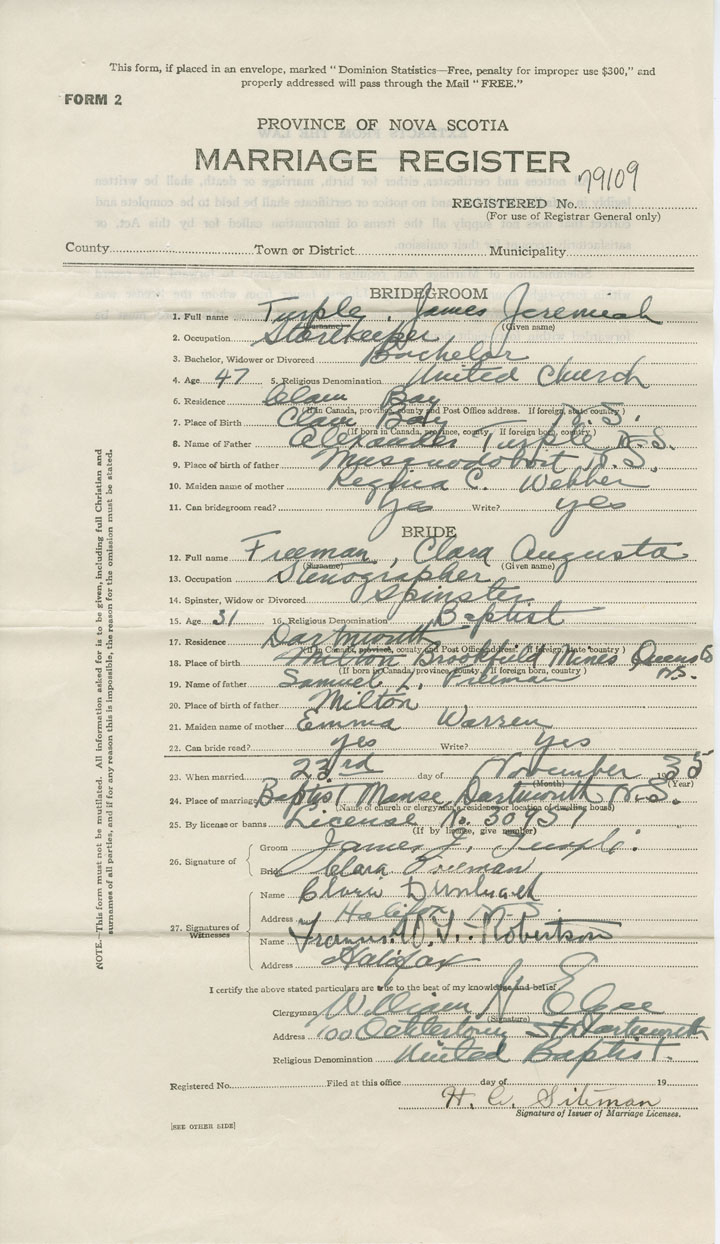 This form, if placed in an envelope, marked "Dominion Statistics—Free, penalty for improper use $300," and
properly addressed will pass through the Mail "FREE."
FORM 2
PROVINCE OF NOVA SCOTIA
MARRIAGE REGISTER
79109
REGISTERED No.
(For use of Registrar General only)
County Town or District Municipality
BRIDEGROOM
1. Full name Turple, James Jeremiah
(Surname) (Given name)
2. Occupation Storekeeper
3. Bachelor, Widower or Divorced Bachelor
4. Age 47 5. Religious Denomination United Church
6. Residence Clam Bay
(If in Canada, province, county and Post Office address. If foreign, state country)
7. Place of Birth Clam Bay N.S.
(If born in Canada, province, county. If foreign born, country)
8. Name of Father Alexander Turple N.S.
9. Place of birth of father Musquodoboit N.S.
10. Maiden name of mother Regina C. Webber
11. Can bridegroom read? Yes Write? yes
BRIDE
12. Full name Freeman, Clara Augusta
(Surname) (Given name)
13. Occupation Stenographer
14. Spinster, Widow or Divorced Spinster
15. Age 31 16. Religious Denomination Baptist
17. Residence Dartmouth
(If in Canada, province, county and Post Office address. If foreign, state country)
18. Place of birth Milton Brookfield Mines Queens Co
N.S.
(If born in Canada, province, county. If foreign born, country)
19. Name of father Samuel L. Freeman
20. Place of birth of father Milton
21. Maiden name of mother Emma Warren
22. Can bride read? yes Write? yes
23. When married 23rd day of November 1935
(Month) (Year)
24. Place of marriage Baptist Manse Dartmouth N.S.
(Name of church or clergyman's residence or location of dwelling house)
25. By license or banns License No. 30957
(If by license, give number)
26. Signature of Groom James J. Turple
Bride Clara Freeman
27. Signatures of Witnesses
Name
Address Halifax N.S.
Name Robertson
Address Halifax
I certify the above stated particulars are true to the best of my knowledge and belief
Clergyman William H
(Signature)
Address 100 St. Dartmouth
Religious Denomination United Baptist.
Registered No. Filed at this office day of 19
H. Siteman
Signature of Issuer of Marriage Licenses.
[SEE OTHER SIDE]
NOTE.—This form must not be mutilated. All information asked for is to be given, including full Christian and
surnames of all parties, and if for any reason this is impossible, the reason for the omission must be stated.